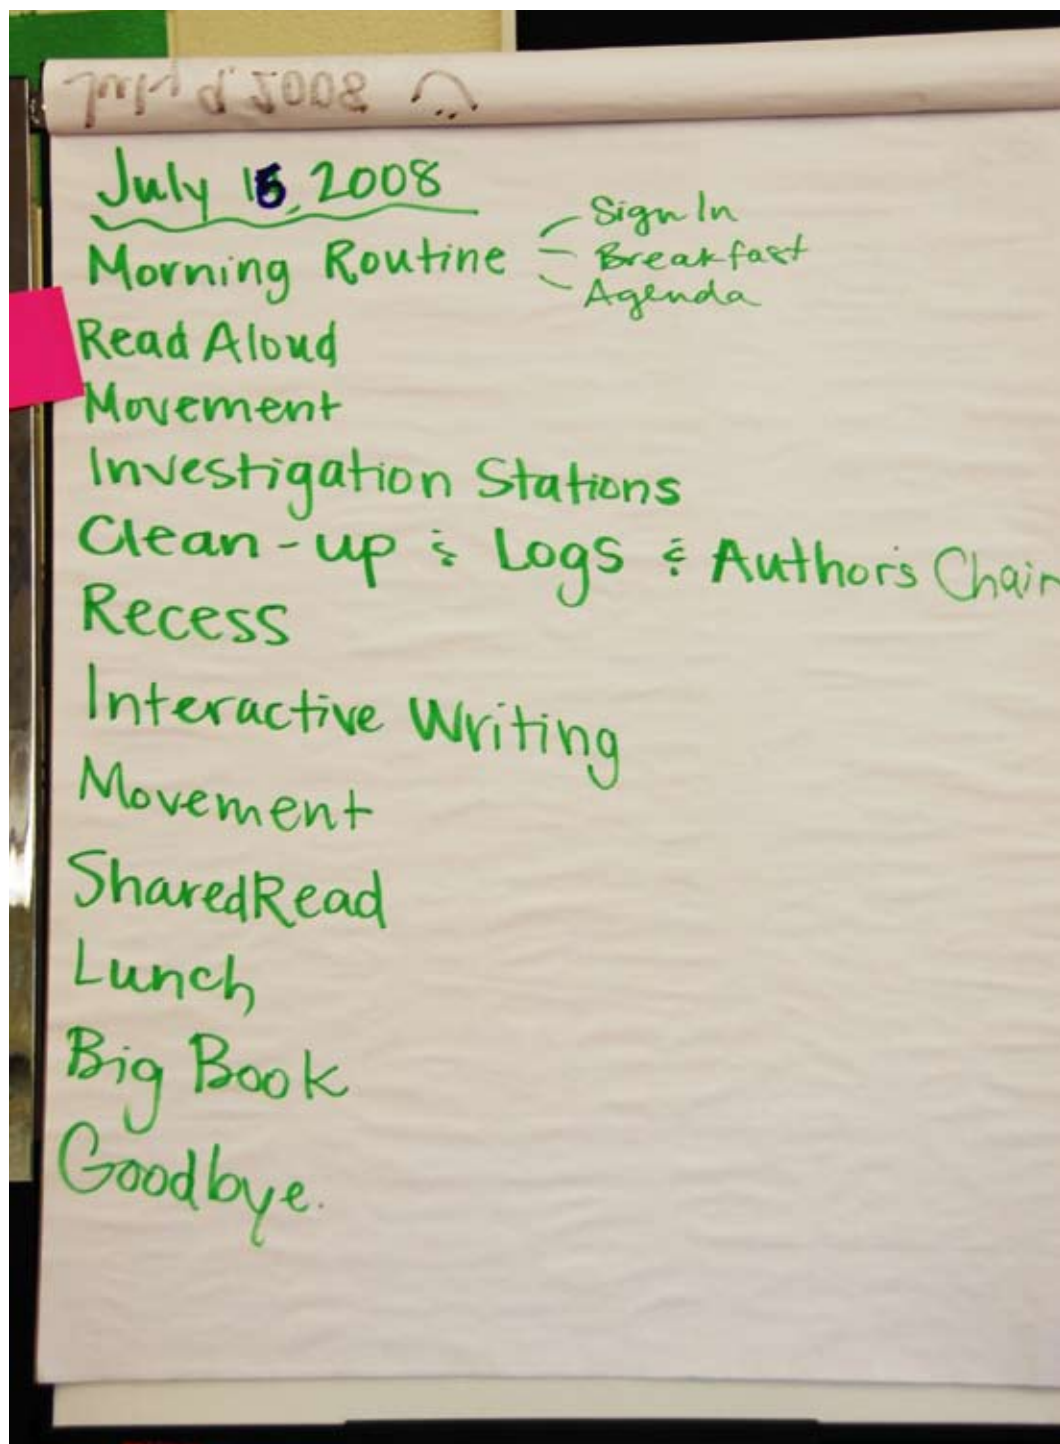 July 15, 2008
Morning Routine
Sign In
Breakfast
Agenda
Read Aloud
Movement
Investigation Stations
Clean-up & Logs & Author's Chair
Recess
Interactive Writing
Movement
Shared Read
Lunch
Big Book
Goodbye.